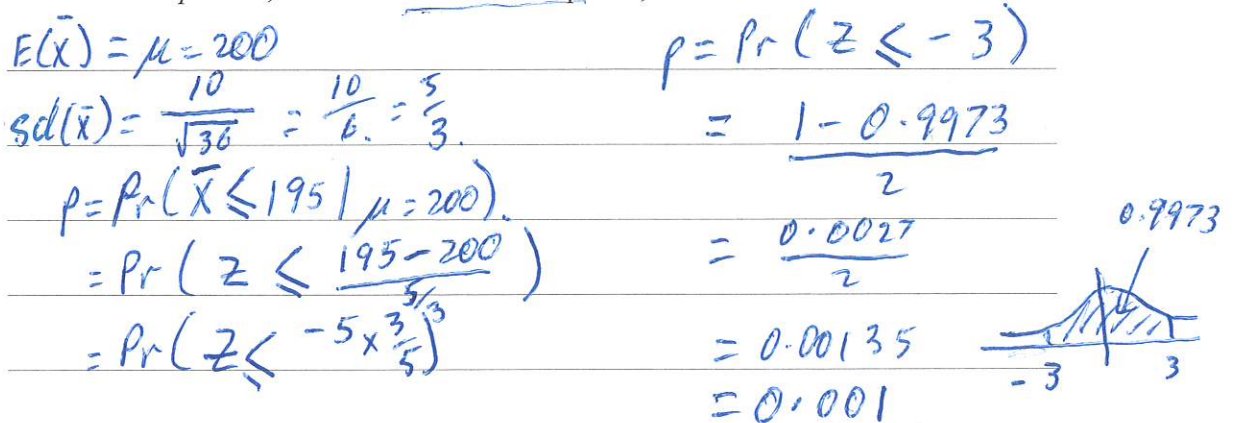 E(X̄) = μ = 200
sd(x̄) = 10/√36 = 10/6. = 5/3.
p = Pr(X̄ ≤ 195 | μ = 200).
= Pr(Z ≤ (195 - 200)/(5/3))
= Pr(Z ≤ -5 × 3/5)
p = Pr(Z ≤ -3)
= (1 - 0.9973)/2
= 0.0027/2
= 0.00135
= 0.001
0.9973
-3 3